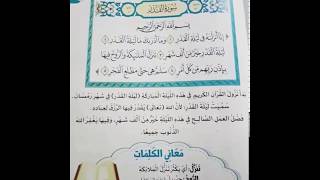 سُورَةُ القَدْرِ
بِسْمِ اللَّهِ الرَّحْمَنِ الرَّحِيمِ
﴿إِنَّا أَنزَلْنَاهُ فِي لَيْلَةِ الْقَدْرِ ۝ وَمَا أَدْرَاكَ مَا لَيْلَةُ الْقَدْرِ ۝
لَيْلَةُ الْقَدْرِ خَيْرٌ مِّنْ أَلْفِ شَهْرٍ ۝ تَنَزَّلُ الْمَلَائِكَةُ وَالرُّوحُ فِيهَا
بِإِذْنِ رَبِّهِم مِّن كُلِّ أَمْرٍ ۝ سَلَامٌ هِيَ حَتَّى مَطْلَعِ الْفَجْرِ﴾
بدأ نزول القرآن الكريم في هذه الليلة المباركة (ليلة القدر) في شهر رمضان.
سميت ليلة القدر؛ لأن الله (تعالى) يقدر فيها الرزق لعباده.
فضل العمل الصالح في هذه الليلة خير من ألف شهر، وفيها يغفر الله
الذنوب جميعًا.
مَعَانِي الكَلِمَاتِ
تَنَزَّلُ: أي يكثر تنزل الملائكة
الرُّوحُ: